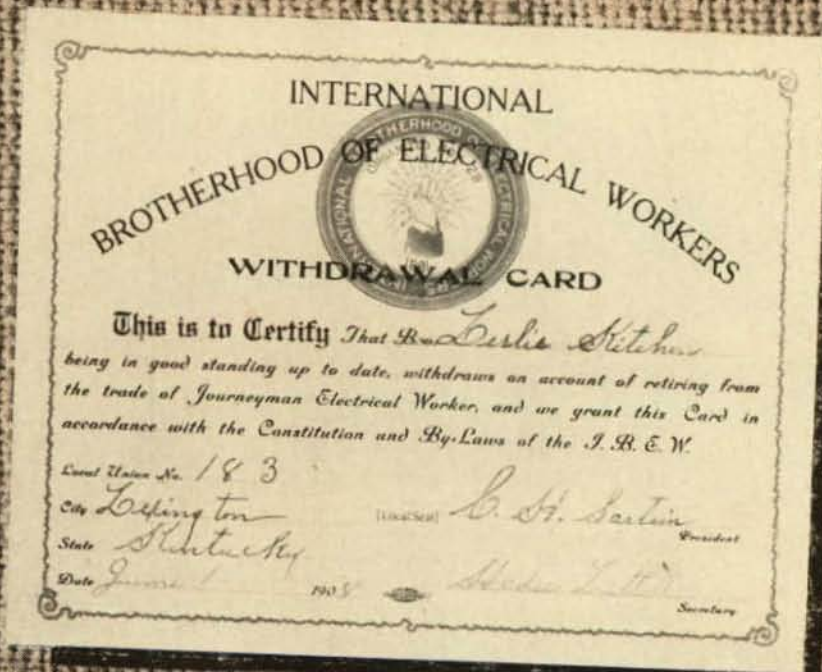 INTERNATIONAL
BROTHERHOOD OF ELECTRICAL WORKERS
WITHDRAWAL CARD
This is to Certify That Bro Leslie Kitchen
being in good standing up to date, withdraws on account of retiring from
the trade of Journeyman Electrical Worker, and we grant this Card in
accordance with the Constitution and By-Laws of the I. B. E. W.
Local Union No. 183
City Lexington [Local Seal] C. H. Sartin President
State Kentucky
Date June 1 1908 Secretary